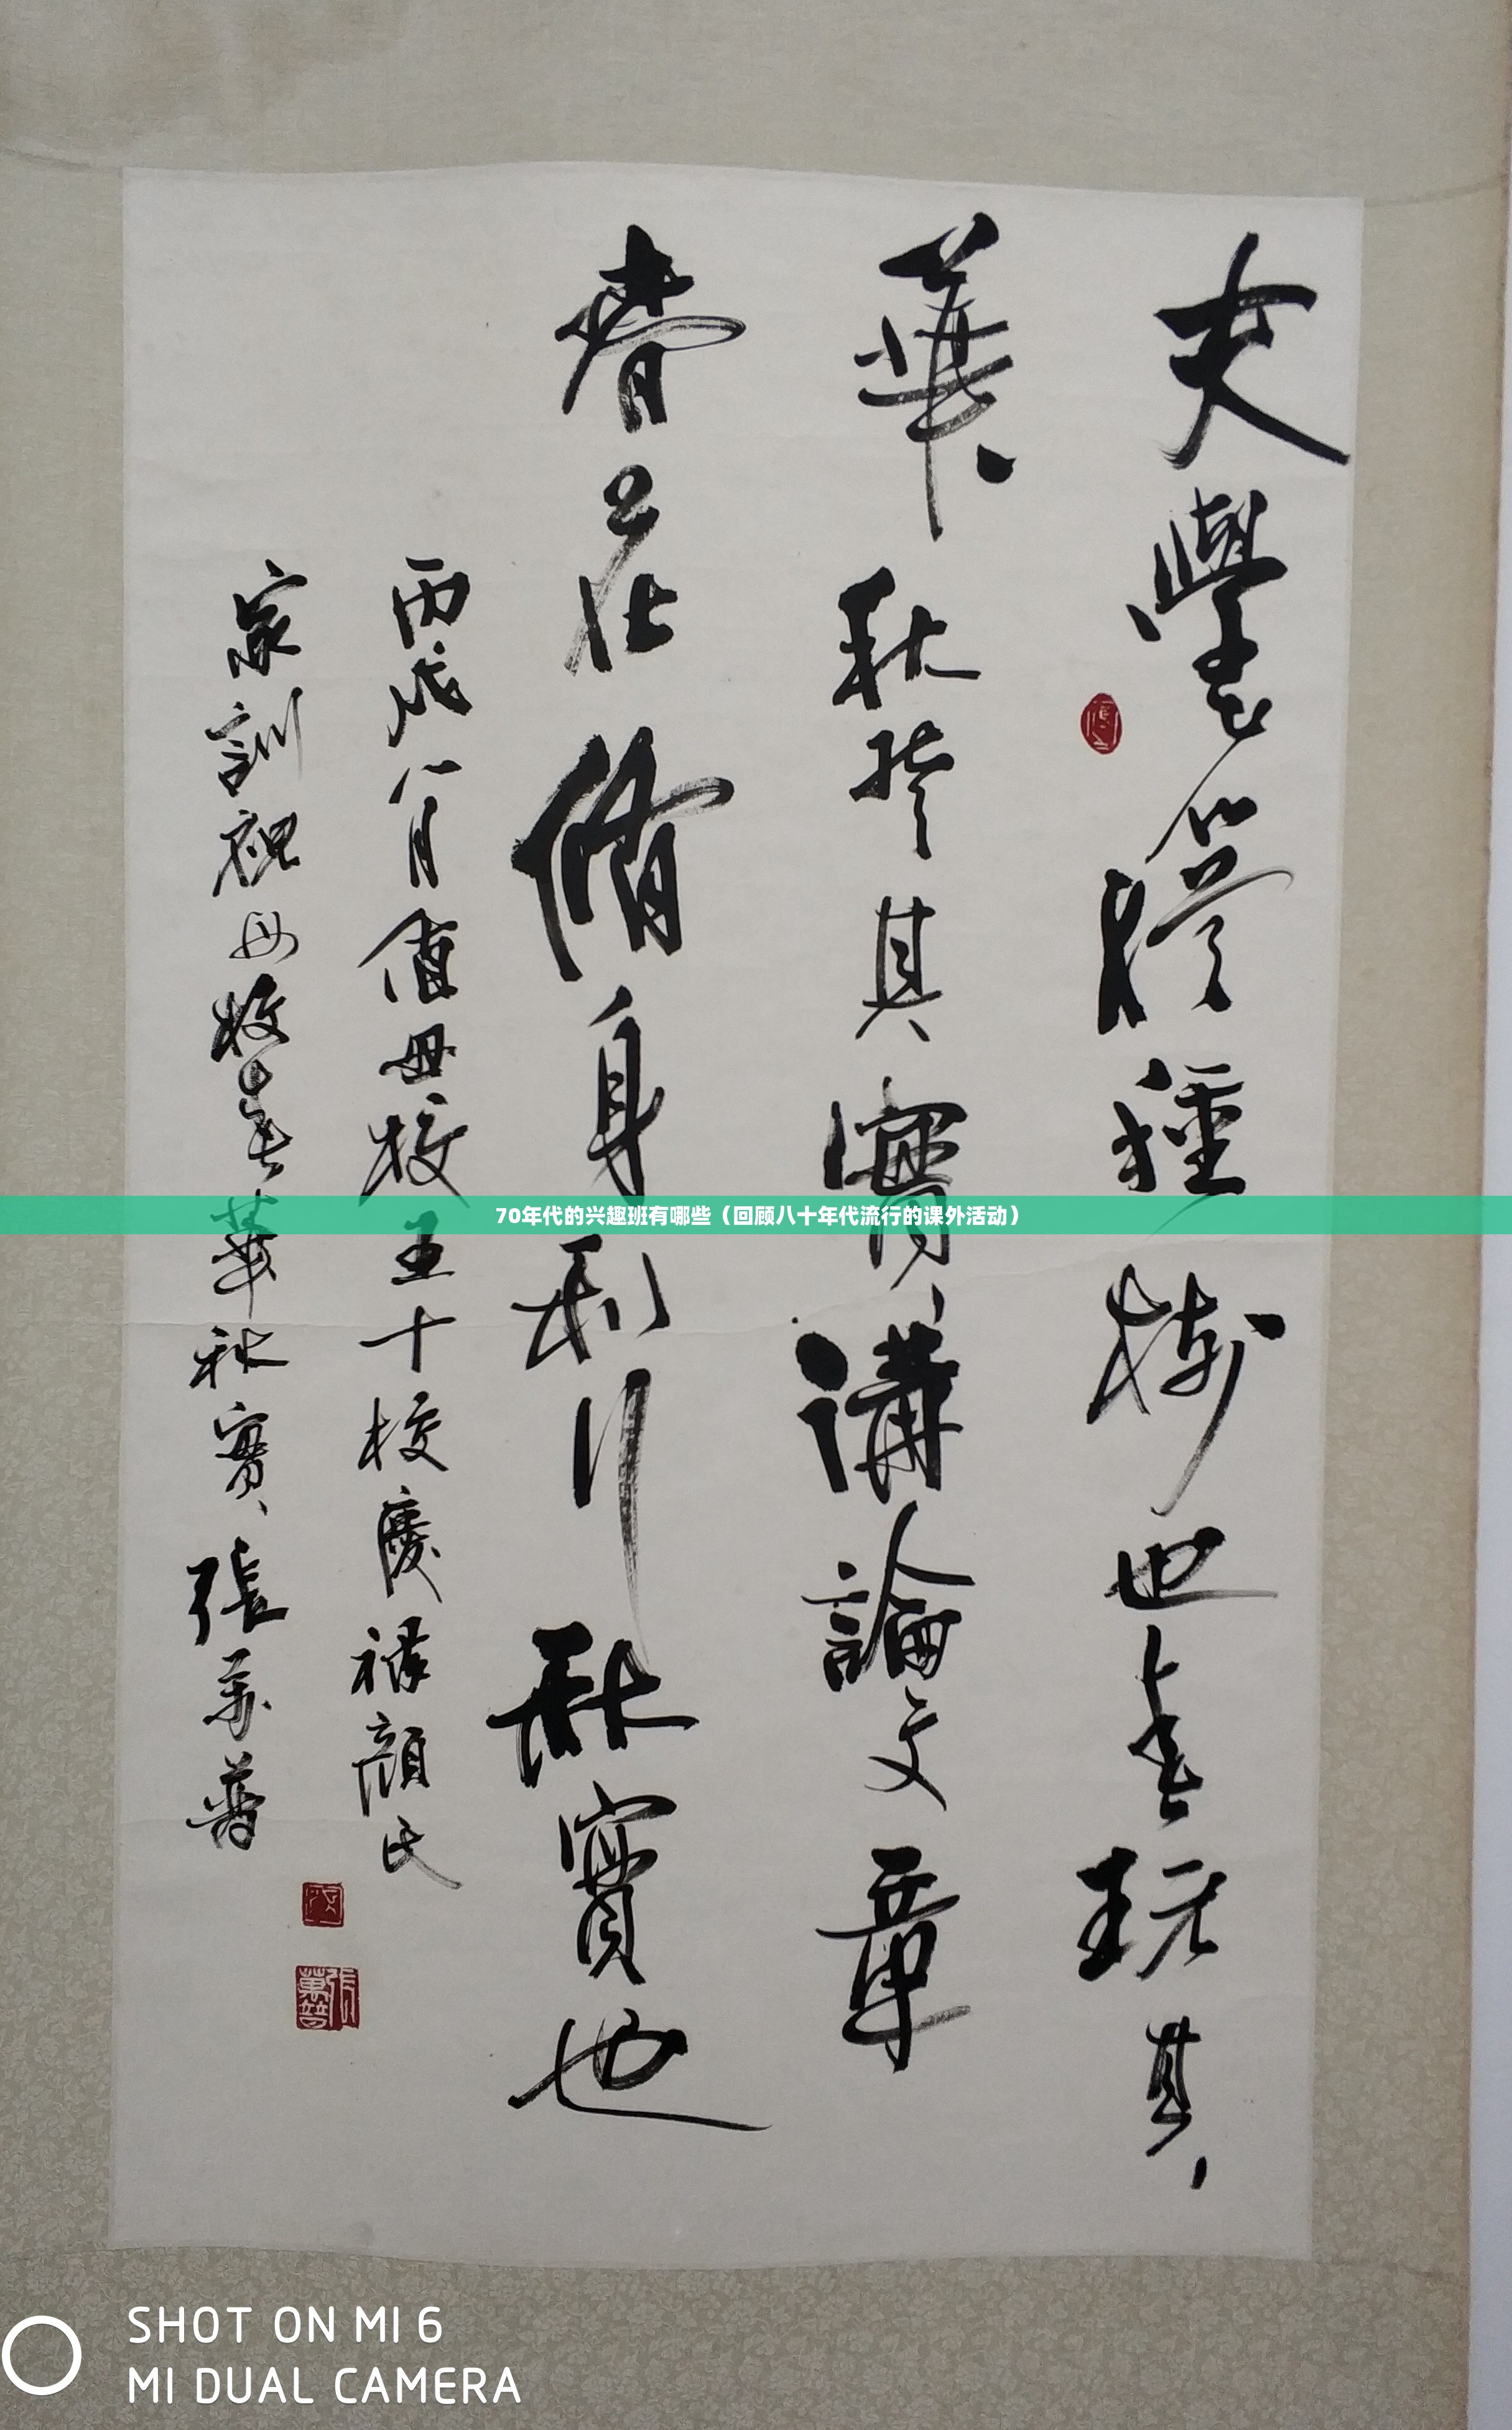 夫學者猶種樹也春玩其
華秋登其實講論文章
春花修身利行秋實也
丙戌八月值母校五十校慶祿顏氏
家訓祝母校春華秋實張万普
70年代的兴趣班有哪些（回顾八十年代流行的课外活动）
SHOT ON MI 6
MI DUAL CAMERA